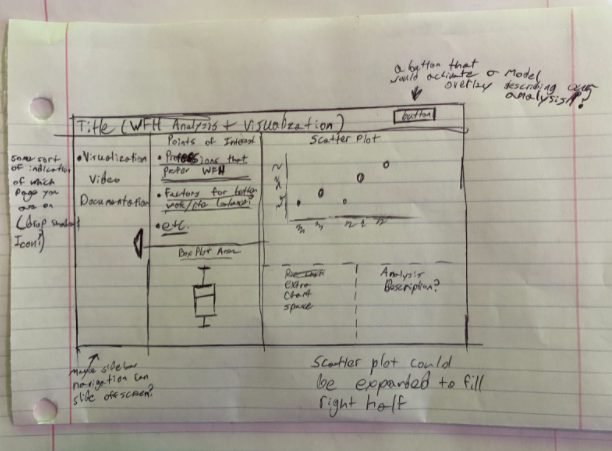 a button that
would activate a Model
overlay describing our
analysis?
button
Title (WFH Analysis + Visualization)
some sort
of indication
of which
page you
are on
(drop shadow
Icon?)
• Visualization
Video
Documentation
Points of Interest
• Professions that
prefer WFH
• Factors for better
work/life balance?
• etc.
Box Plot Area
Scatter Plot
extra
Chart
space
Analysis
Description?
Maybe sidebar
navigation can
slide offscreen?
Scatter plot could
be expanded to fill
right half